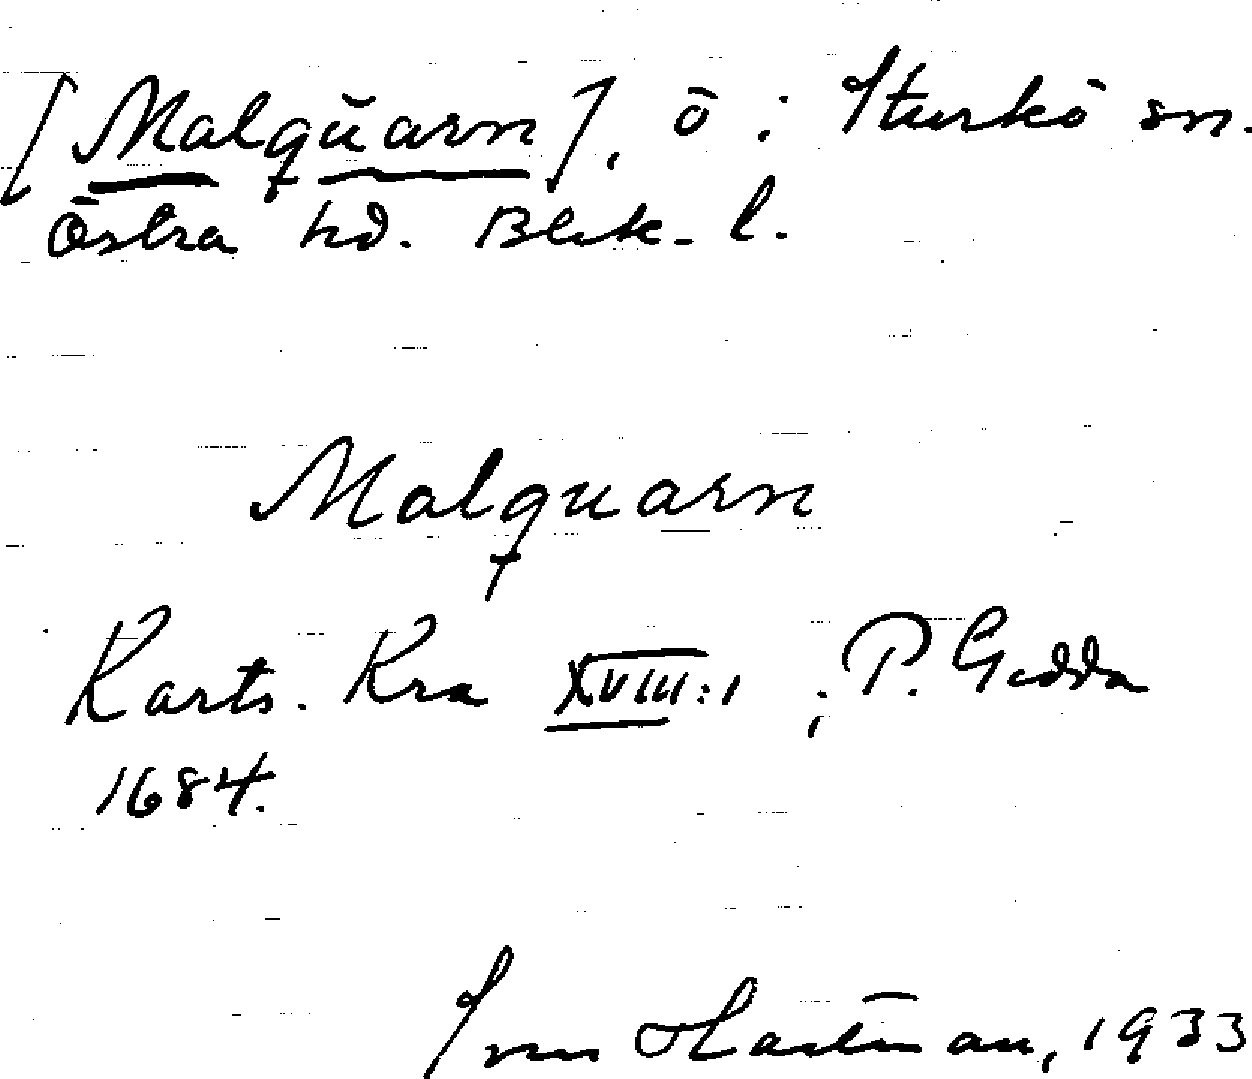 [Malquarn], ö i Sturkö sn.
Östra hd. Blek. l.
Malquarn
Karts. Kra XVIII:1 ; P. Gedda
1684.
Hartman, 1933